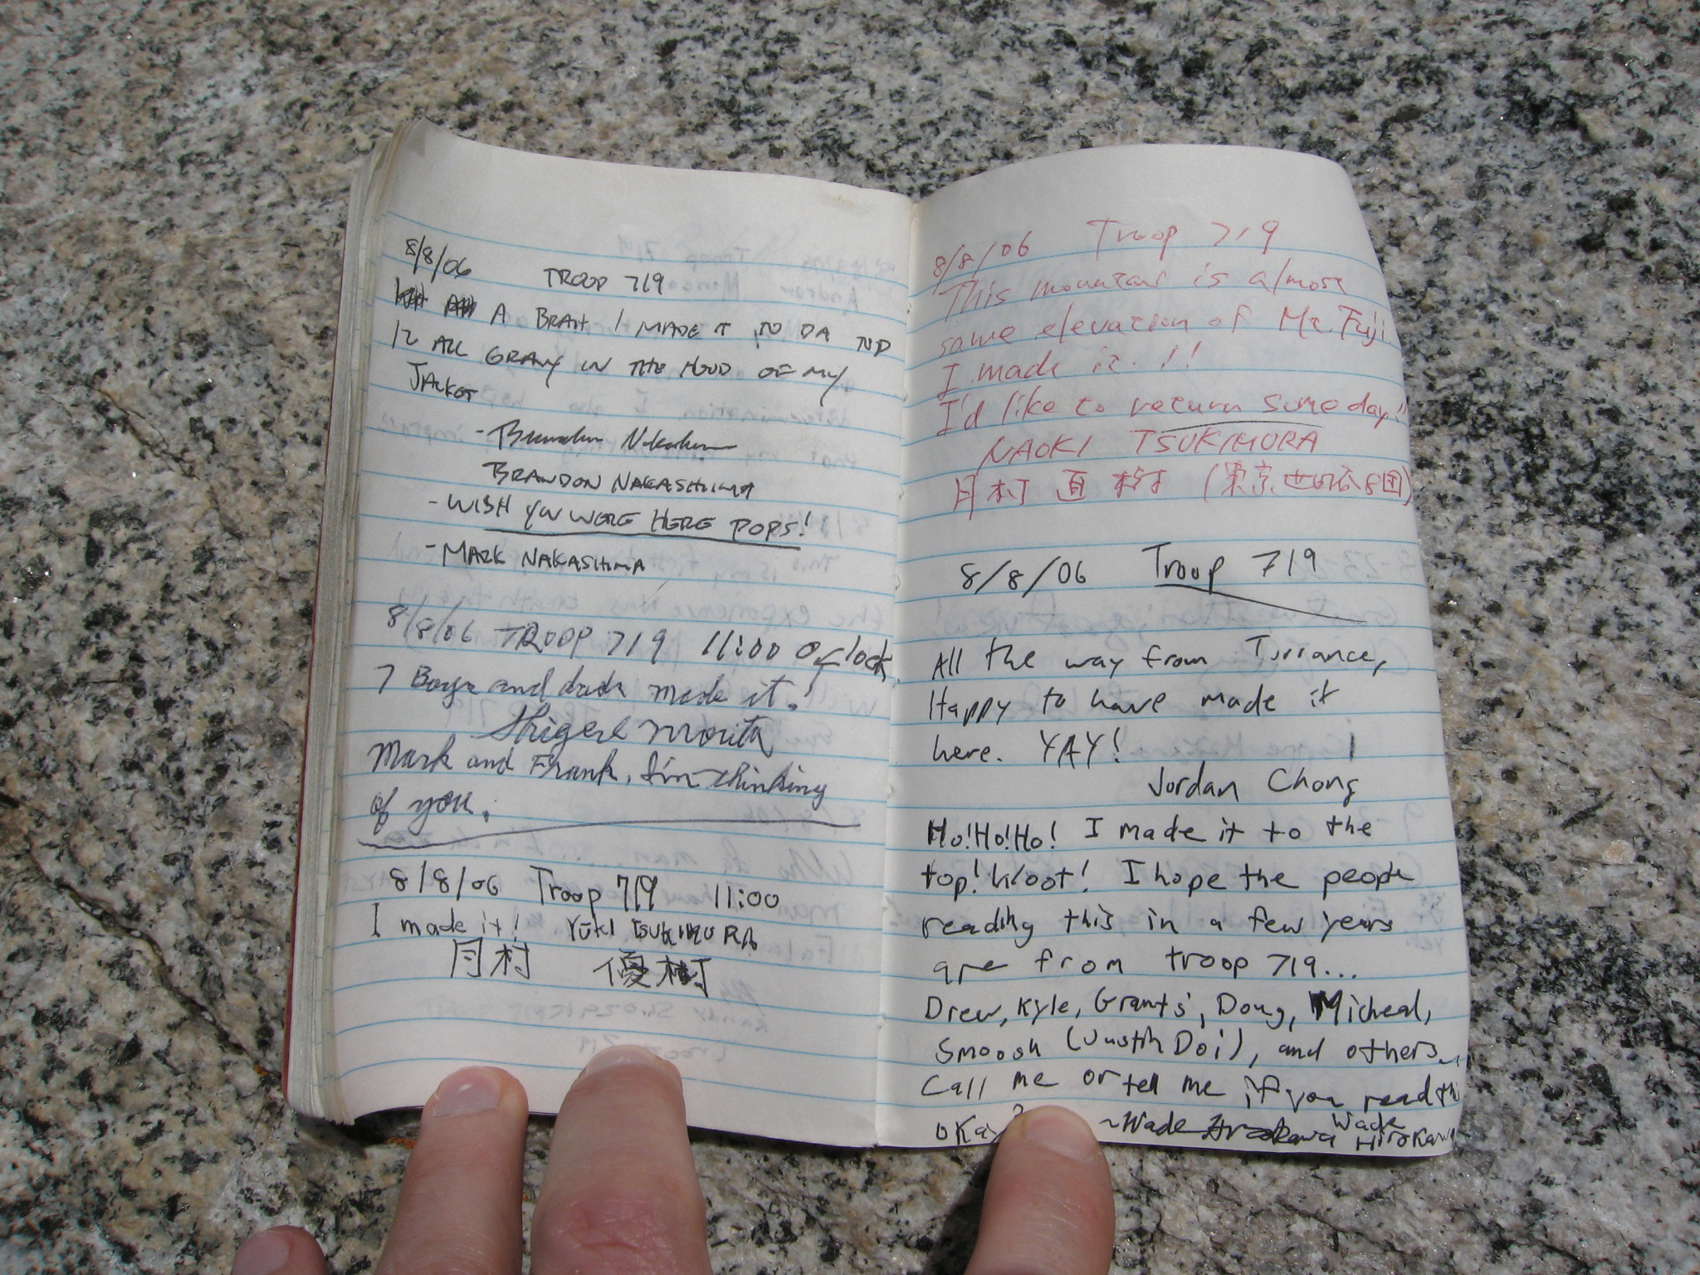 8/8/06 TROOP 719
A BRAH I MADE IT TO DA TOP
12 ALL GRAVY IN THE HOOD OF MY
JACKET
- Brandon Nakashima
BRANDON NAKASHIMA
- WISH YOU WERE HERE POPS!
- MARK NAKASHIMA
8/8/06 TROOP 719 11:00 o'clock
7 Boys and dads made it!
Shigeru Morita
Mark and Frank, I'm thinking
of you.
8/8/06 Troop 719 11:00
I made it! YūKI TSUKIMURA
月村 優樹
8/8/06 Troop 719
This mountain is almost
same elevation of Mt. Fuji
I made it!!
I'd like to return someday!!
NAOKI TSUKIMURA
月村 直樹 (東京世田谷8団)
8/8/06 Troop 719
All the way from Torrance,
Happy to have made it
here. YAY!
Jordan Chong
Ho!Ho!Ho! I made it to the
top! W00t! I hope the people
reading this in a few years
are from troop 719...
Drew, Kyle, Grants, Doug, Micheal,
Smoosh (Justin Doi), and others
Call me or tell me if you read this
okay? ~Wade Hirokawa Wade
Hirokawa